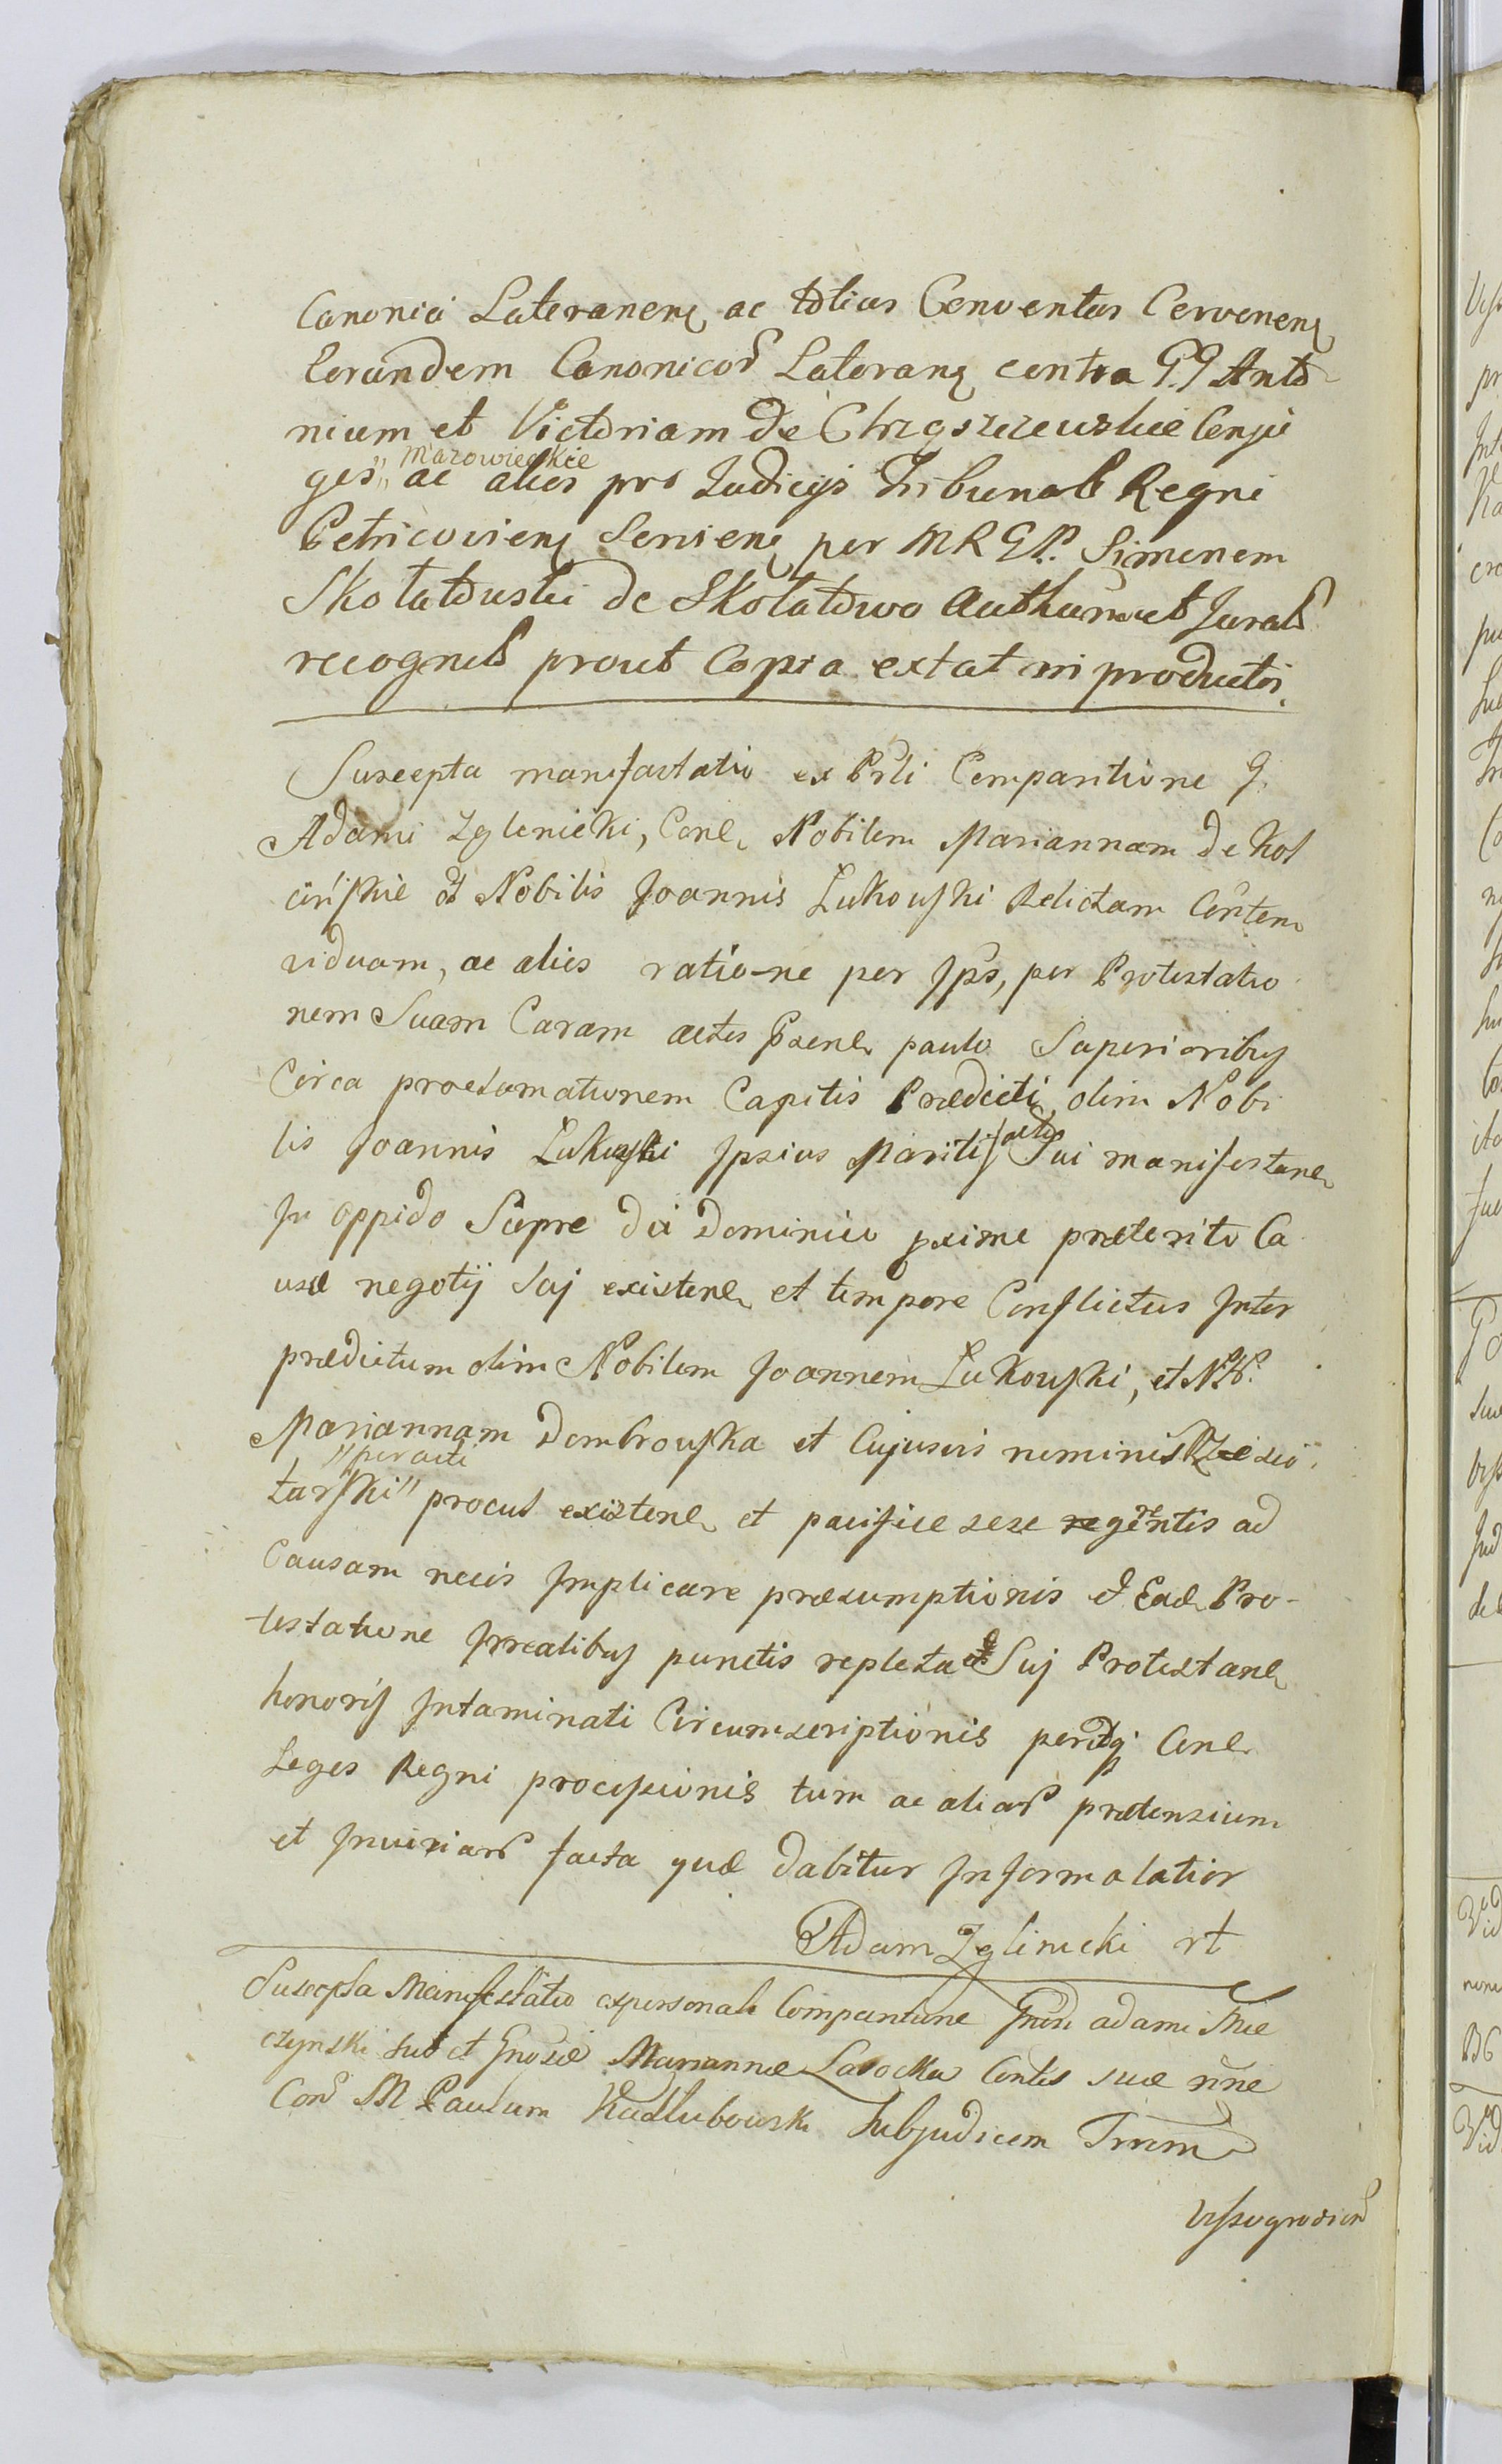 Canonici Lateranen ac totius Conventus Cervenen
Eorundem Canonicor Lateran contra G.G Anto
nium et Victoriam de Chrząszczewskie Conju
ges „Mazowieckie ac alios pro Judicijs Tribunal Regni
Petricovien Servien per M R G P. Simonem
Skotatowski de Skotatowo Authen et Jurat
recognit prout Copia extat in productis.
Suscepta manifestatio ex Prli Comparitione G.
Adami Zglenicki, Con Nobilem Mariannam de Kos
cińskie et Nobilis Joannis Łukowski Relictam Conten
viduam, ac alios ratio-ne per Ips, per Protestatio
nem Suam Coram actis psen paulo Superioribus
Circa proclamationem Capitis Prædicti olim Nobi
lis Joannis Łukowski Ipsius Mariti Sui manifestan
In oppido Sierpc die Dominico pxime præterito Ca
usa negotij Suj existen et tempore Conflictus Inter
prædictum olim Nobilem Joannem Łukowski, et N.N.
Mariannam Dombrowska et Cujusvis nominis
tarski „per acti„ procul existen et pacifice sese gerentis ad
Causam necis Implicare præsumptionis et Ead Pro-
testatione Irrealibus punctis repleta Suj Protestan
honoris Intaminati Circumscriptionis Con
Leges Regni processionis tum ac aliar prætensium
et Injuriar facta quæ dabitur In forma latior
Adam Zglinicki rt
Suscepta Manifestatio ex personali Comparitione Gnosi Adami Mie
czynski suo et Gnosæ Mariannæ Lasocka Contis suæ nne
Con M Paulum Kadłubowski Subjudicem Trrem
Vyssogrodien